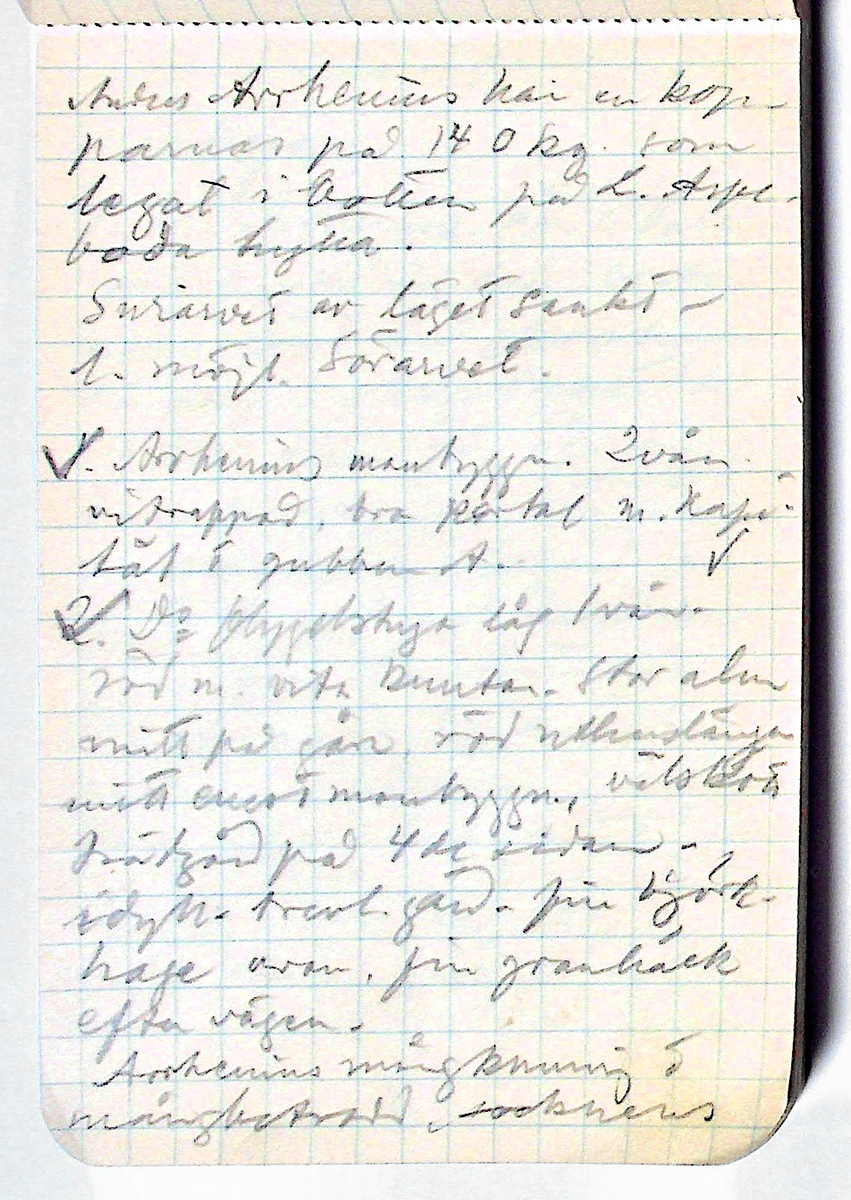 Anders Arrhenius har en kop-
parnas på 140 kg. som
legat i botten på L. Aspe-
boda hytta.
av läget sankt -
l. möjl. Sörarvet.
1. Arrhenius manbyggn. 2vån.
vitrappad, bra portal m. kapi-
täl ö gubben A.
2. Do flygelbygn låg 1 vån.
röd m. vita knutar. Stor alm
mitt på gårn, röd uthuslänga
mitt emot manbyggn., välskött
trädgård på 4de sidan.
idyll. trevl. gård. fin björk-
hage ovan, fin granhäck
efter vägen.
Arrhenius mångkunnig ö
mångbetrodd, socknens